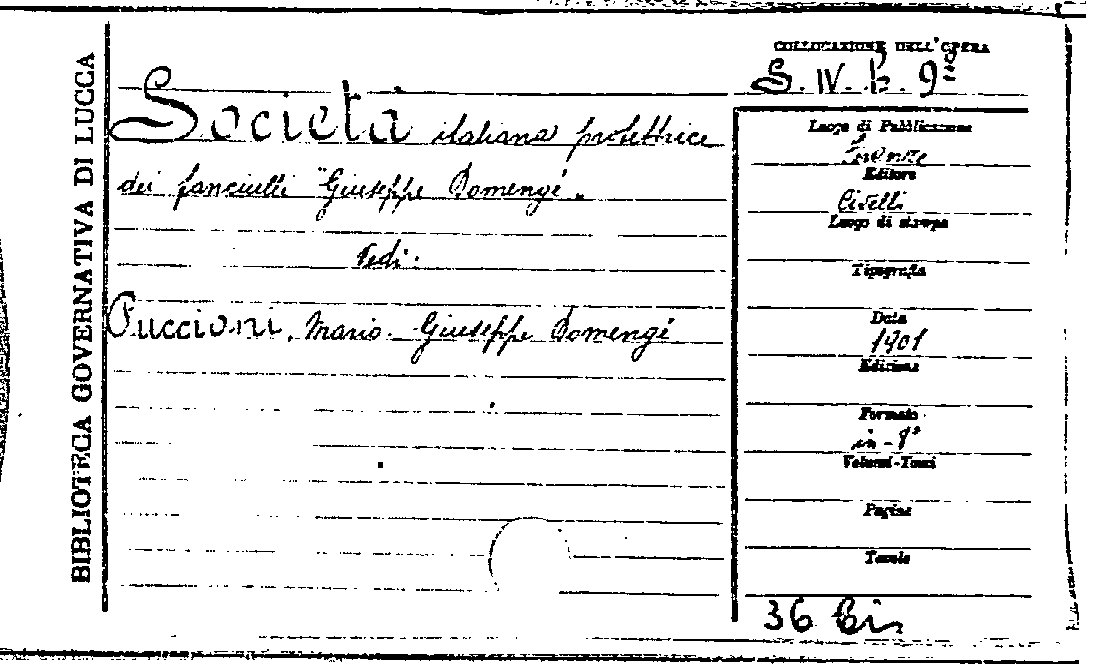 BIBLIOTECA GOVERNATIVA DI LUCCA
COLLOCAZIONE DELL'OPERA
S. IV. b. 9
Società italiana protettrice
dei fanciulli "Giuseppe Domengé".
Vedi:
Puccioni, Mario. Giuseppe Domengé
Luogo di Pubblicazione
Firenze
Editore
Civelli
Luogo di stampa
Tipografia
Data
1901
Edizione
Formato
in-8°
Volumi-Tomi
Pagine
Tavole
36 bis